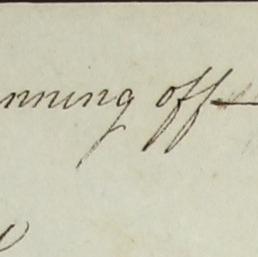 nning off—